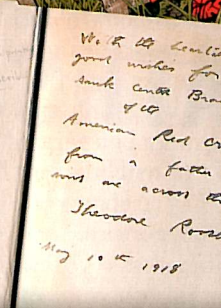 With the heartie
good wishes for
Sauk Centre Bra
of the
American Red Cr
from a father
sons are across th
Theodore Roos
May 10th 1918